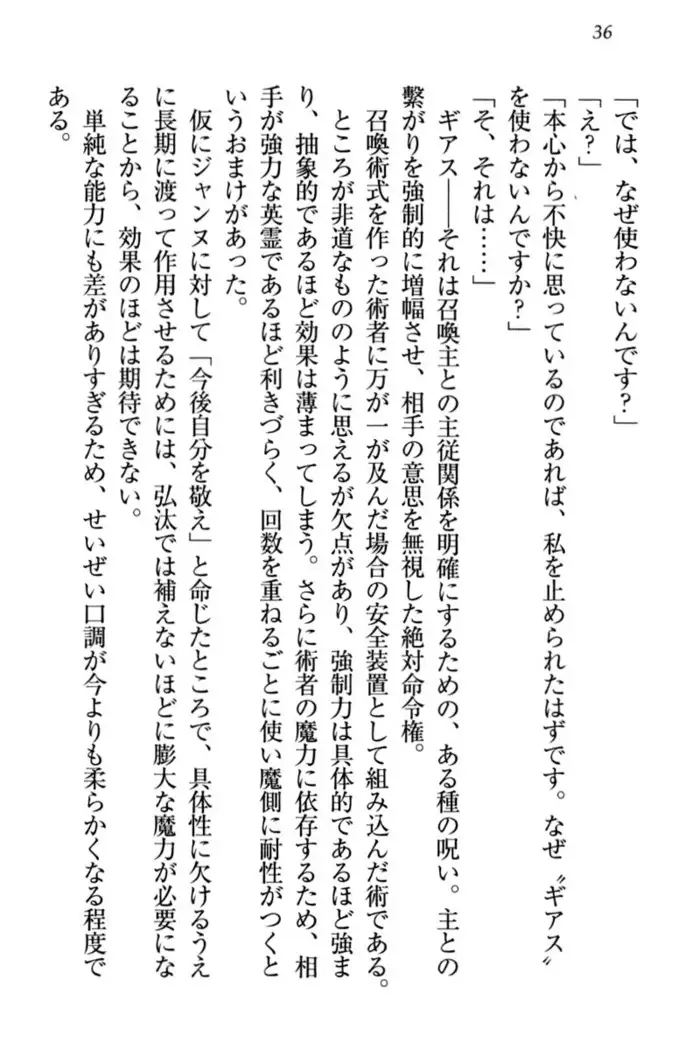 36
「では、なぜ使わないんです？」
「え？」
「本心から不快に思っているのであれば、私を止められたはずです。なぜ〝ギアス〟
を使わないんですか？」
「そ、それは……」
ギアス――それは召喚主との主従関係を明確にするための、ある種の呪い。主との
繋がりを強制的に増幅させ、相手の意思を無視した絶対命令権。
召喚術式を作った術者に万が一が及んだ場合の安全装置として組み込んだ術である。
ところが非道なもののように思えるが欠点があり、強制力は具体的であるほど強ま
り、抽象的であるほど効果は薄まってしまう。さらに術者の魔力に依存するため、相
手が強力な英霊であるほど利きづらく、回数を重ねるごとに使い魔側に耐性がつくと
いうおまけがあった。
仮にジャンヌに対して「今後自分を敬え」と命じたところで、具体性に欠けるうえ
に長期に渡って作用させるためには、弘汰では補えないほどに膨大な魔力が必要にな
ることから、効果のほどは期待できない。
単純な能力にも差がありすぎるため、せいぜい口調が今よりも柔らかくなる程度で
ある。